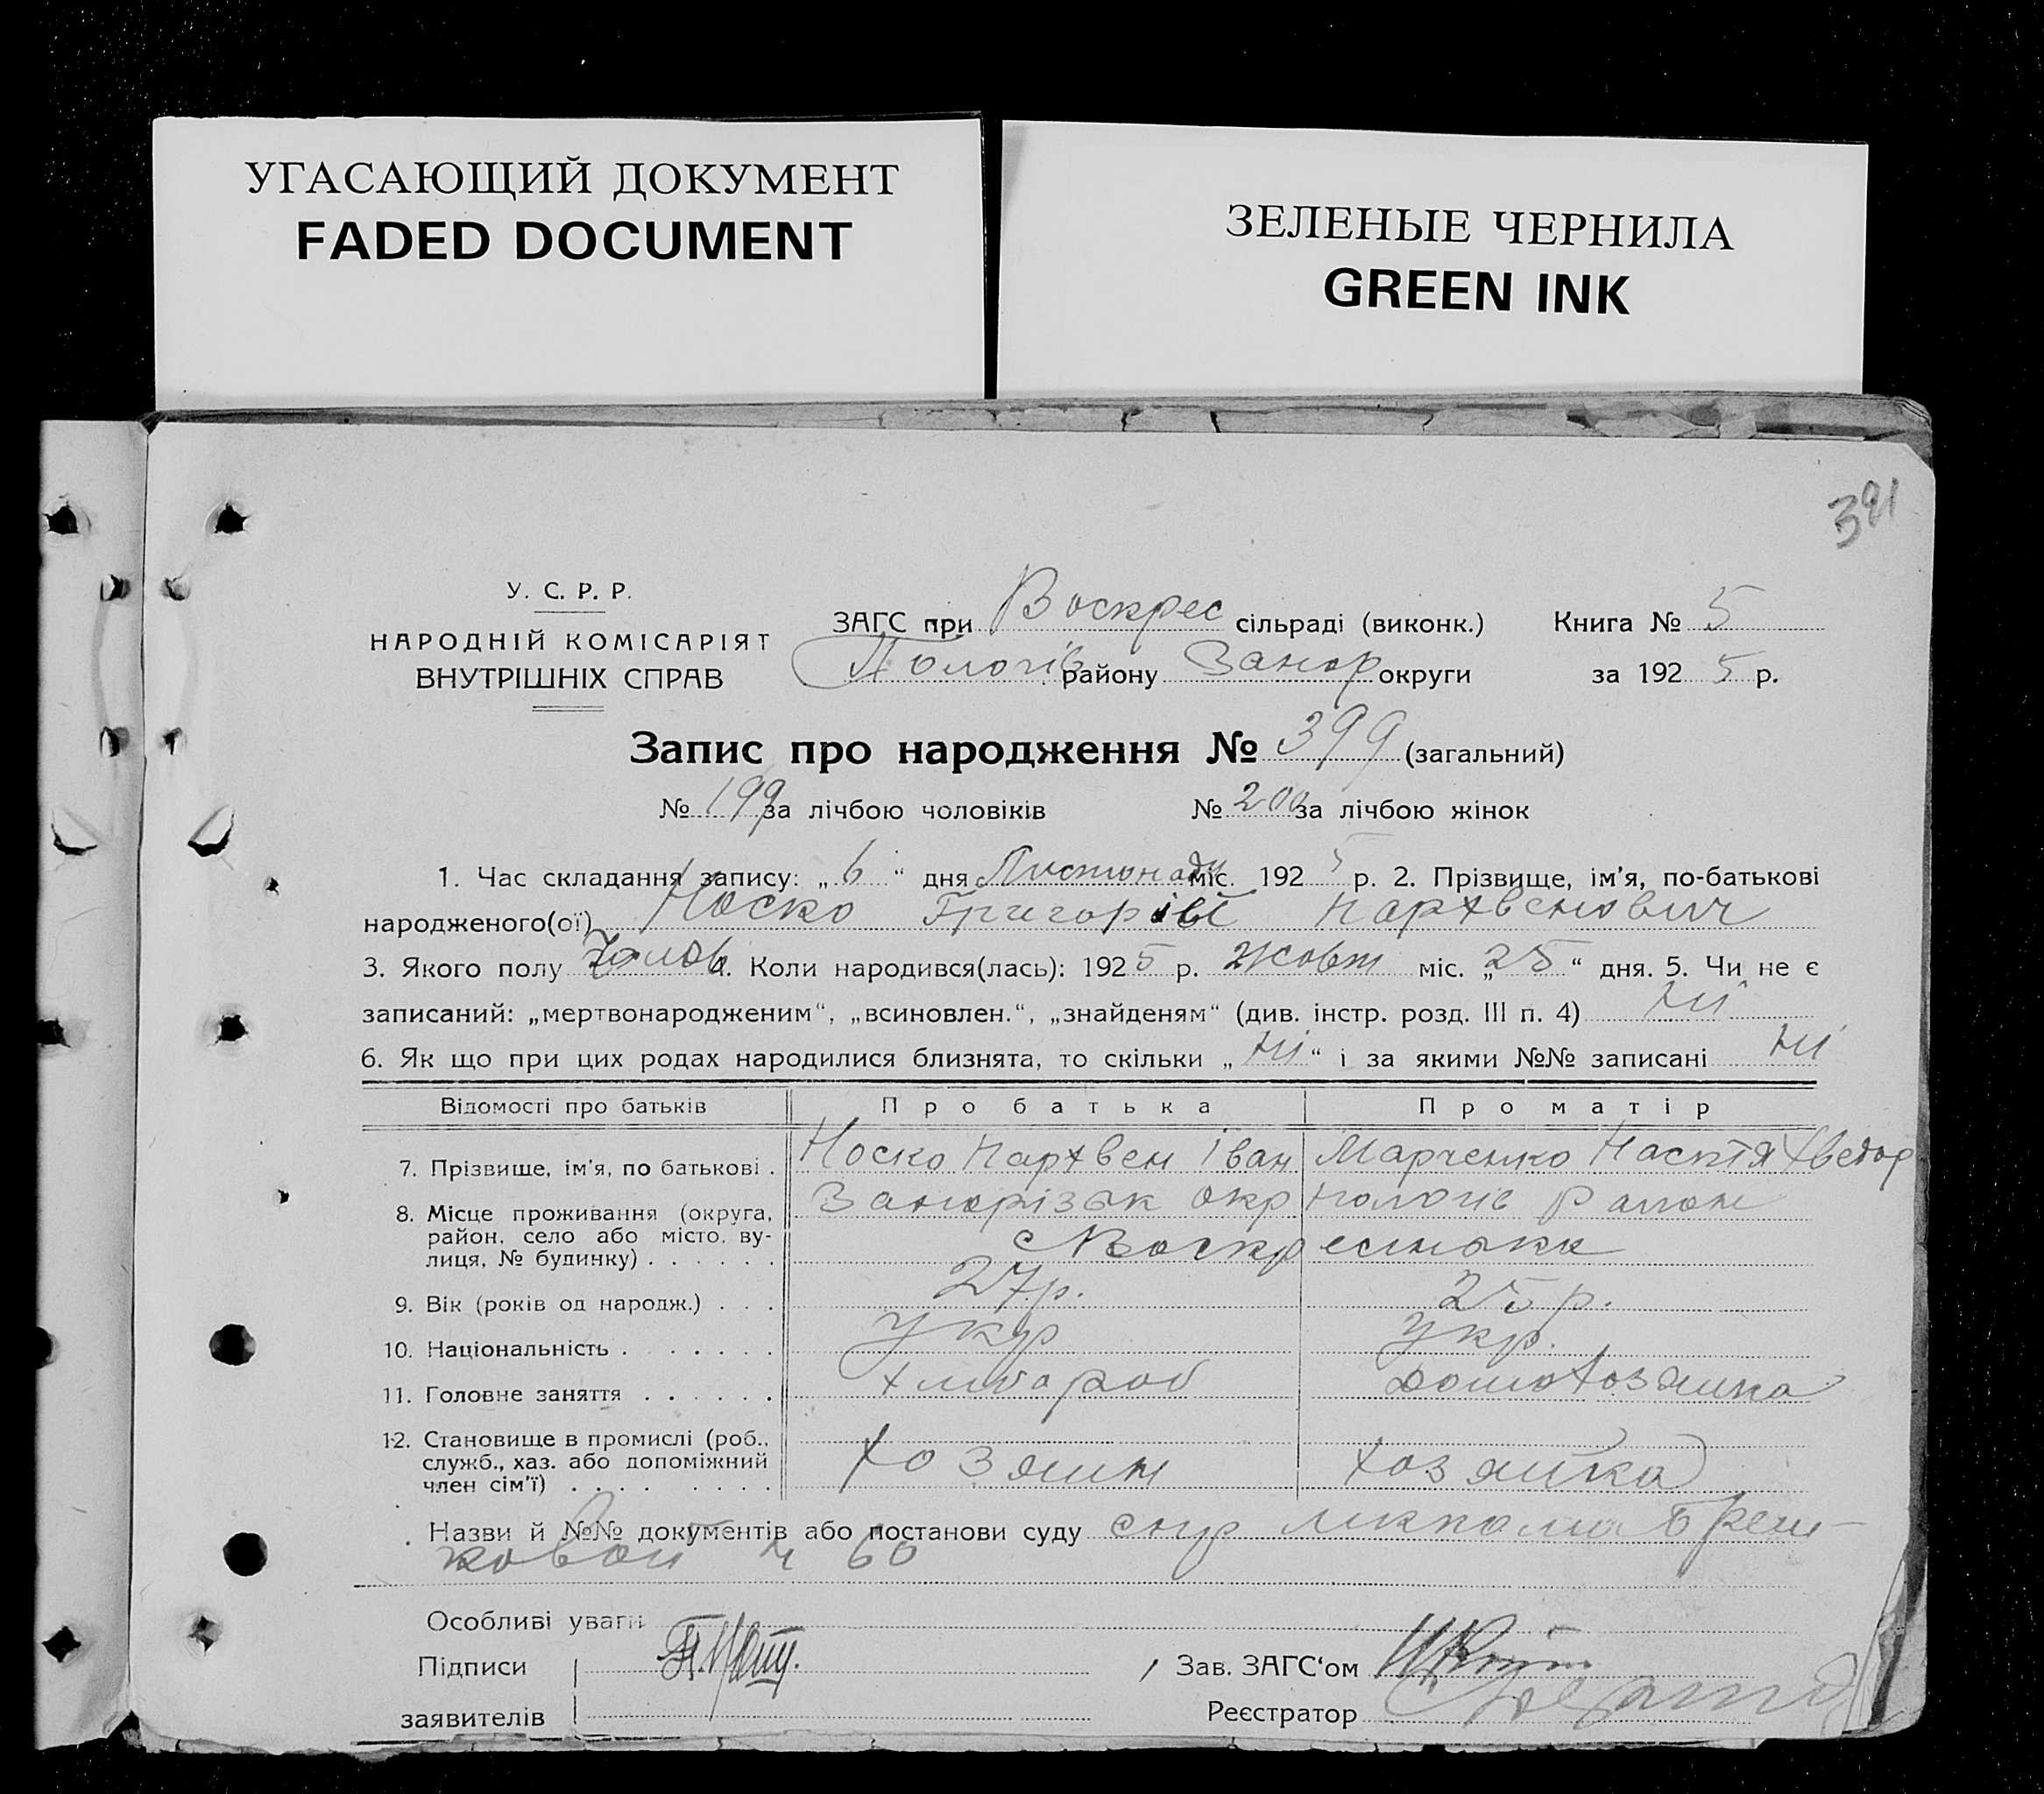 УГАСАЮЩИЙ ДОКУМЕНТ
FADED DOCUMENT
ЗЕЛЕНЫЕ ЧЕРНИЛА
GREEN INK
391
У. С. Р. Р.
НАРОДНІЙ КОМІСАРІЯТ
ВНУТРІШНІХ СПРАВ
ЗАГС при Воскрес сільраді (виконк.) Книга № 5
Пологів району Запор округи за 1925 р.
Запис про народження № 399 (загальний)
№ 199 за лічбою чоловіків № 200 за лічбою жінок
1. Час складання запису: „6“ дня Листопада міс. 1925 р. 2. Прізвище, ім'я, по-батькові
народженого(ої) Носко Григорій Пархвенович
3. Якого полу Чолов 4. Коли народився(лась): 1925 р. Жовт міс. „25“ дня. 5. Чи не є
записаний: „мертвонародженим“, „всиновлен.“, „знайденям“ (див. інстр. розд. III п. 4) Ні
6. Як що при цих родах народилися близнята, то скільки „Ні“ і за якими №№ записані Ні
Відомості про батьків Про батька Про матір
7. Прізвище, ім'я, по батькові . Носко Пархвен Іван Марченко Настя Хведор
8. Місце проживання (округа, район, село або місто, ву-
лиця, № будинку) . . . . . . Запорізьк окр Пологів район
с Воскресенька
9. Вік (років од народж.) . . . 27 р. 25 р.
10. Національність . . . . . . . Укр Укр.
11. Головне заняття . . . . . . Хлібороб Домохозяйка
12. Становище в промислі (роб.,
служб., хаз. або допоміжний
член сім'ї) . . . . . . . . Хозяин Хозяйка
Назви й №№ документів або постанови суду
60
Особливі уваги
Підписи
заявителів
Зав. ЗАГС‘ом
Реєстратор